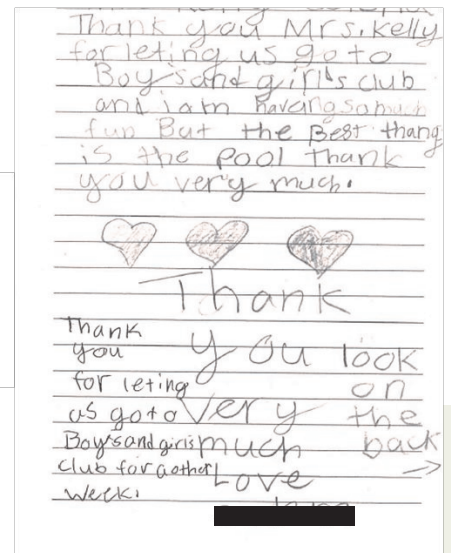 Thank you Mrs. Kelly
for leting us go to
Boy's and girl's club
and i am having so much
fun But the Best thang
is the pool thank
you very much.
Thank
you
very
much
Love
Thank
you
for leting
us go to
Boy's and girls
club for a other
week.
look
on
the
back